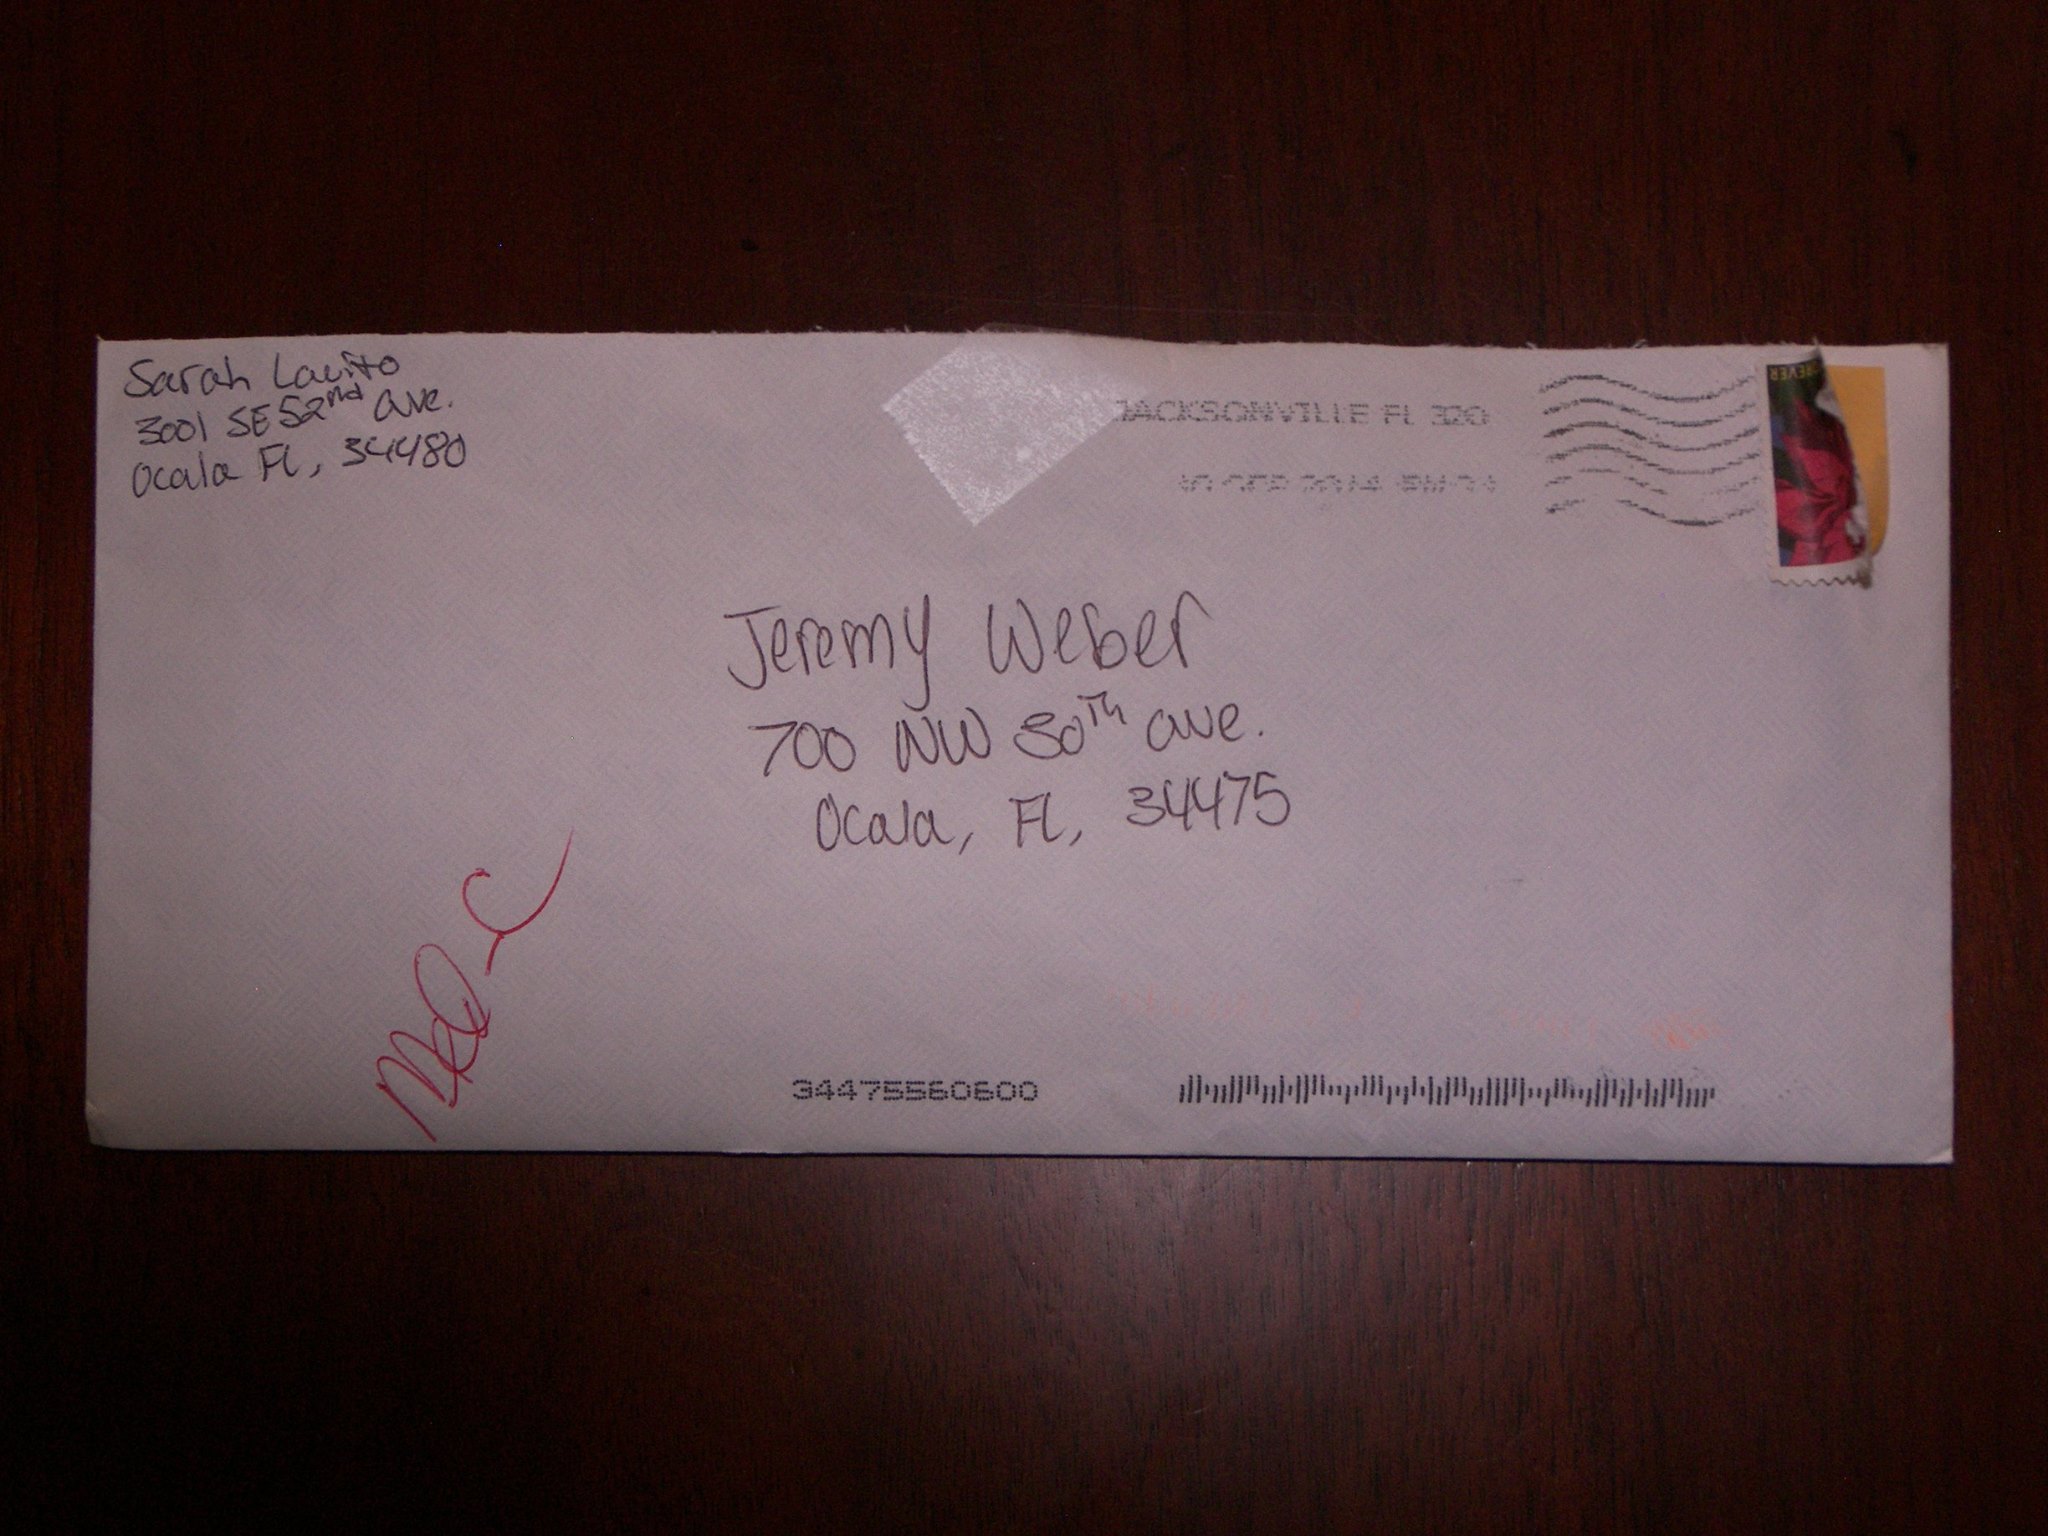 Sarah Lavito
3001 SE 52nd ave.
Ocala FL, 34480
JACKSONVILLE FL 320
SEP 2014 PM
Jeremy Weber
700 NW 30th ave.
Ocala, FL, 34475
34475560600